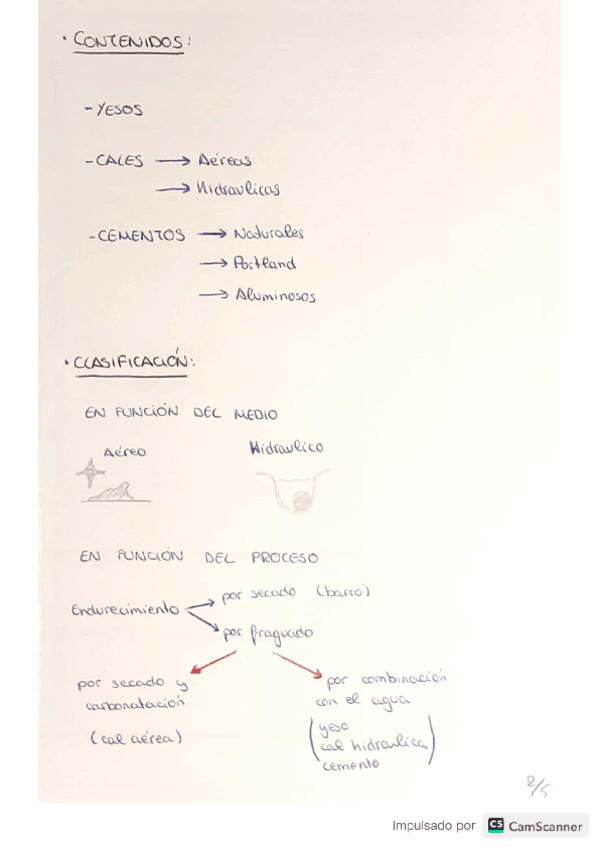 · CONTENIDOS:
- YESOS
- CALES → Aéreas
→ Hidraulicas
- CEMENTOS → Naturales
→ Portland
→ Aluminosos
· CLASIFICACIÓN:
EN FUNCIÓN DEL MEDIO
Aéreo Hidraulico
EN FUNCIÓN DEL PROCESO
Endurecimiento → por secado (barro)
→ por fraguado
por secado y
carbonatación
(cal aérea)
por combinación
con el agua
(yeso
cal hidraulica
cemento)
2/5
Impulsado por CS CamScanner